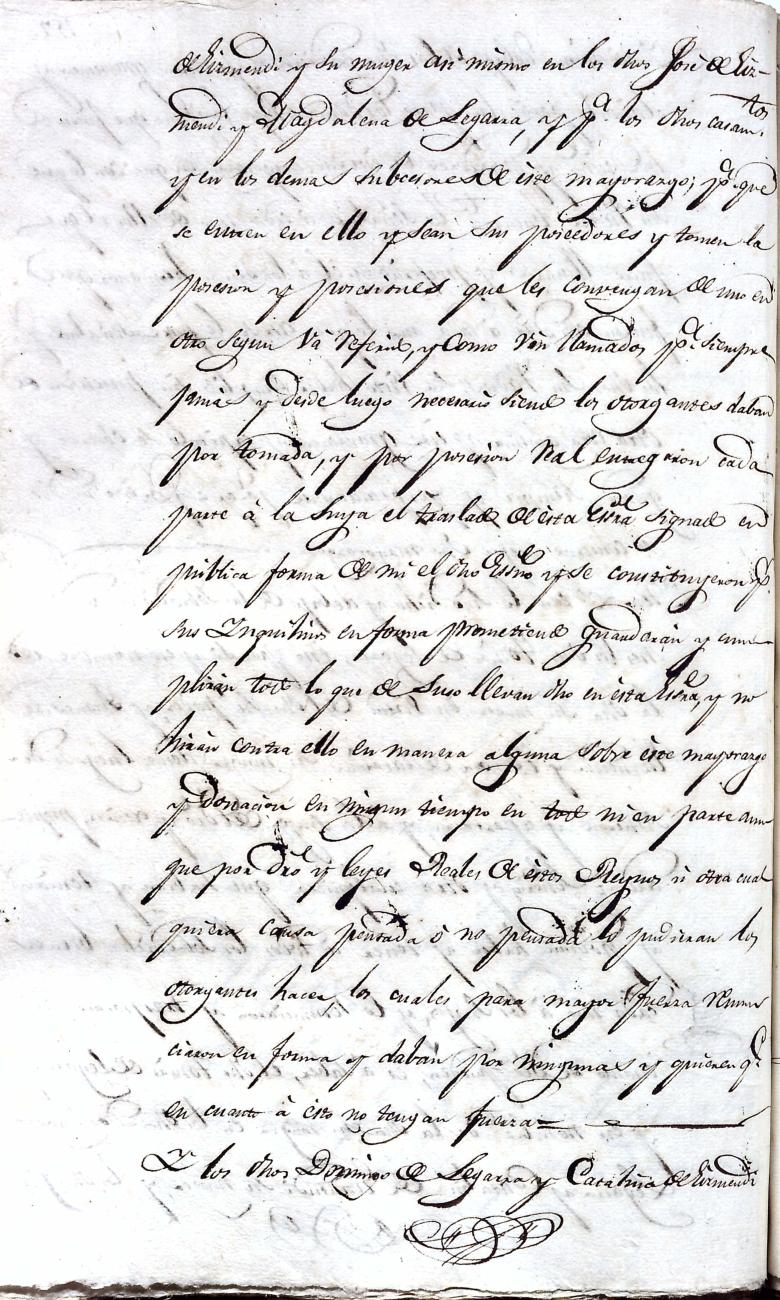 de Lizmendi y su muger asi mismo en los dhos José de Liz-
mendi y Magdalena de Legarra, y pª. los dhos casamtos.
y en los demas subcesores de este mayorazgo; pª. que
se entren en ello y sean sus poceedores y tomen la
posesion y posesiones que les convengan de uno en
otro segun vá referido, y como ván llamados pª. siempre
jamas y desde luego necesario siendo los otorgantes daban
por tomada, y por posesion Real entregaron cada
parte á la suya el traslado de esta Essra signado en
publica forma de mi el dho Essno y se constituyeron pr.
sus Inquilinos en forma prometiendo guardarán y cum-
plirán todo lo que de suso llevan dho en esta Essra, y no
hirán contra ello en manera alguna sobre este mayorazgo
y donacion en ningun tiempo en todo ni en parte aun-
que por dro y leyes Reales de estos Reynos ú otra cual
quiera causa pensada ó no pensada lo pudieran los
otorgantes hacer, los cuales para mayor fuerza renun
ciaron en forma y daban por ningunas y quieren qe.
en cuanto á esto no tengan fuerza=
Y los dhos Domingo de Legarra y Catalina de Lizmendi